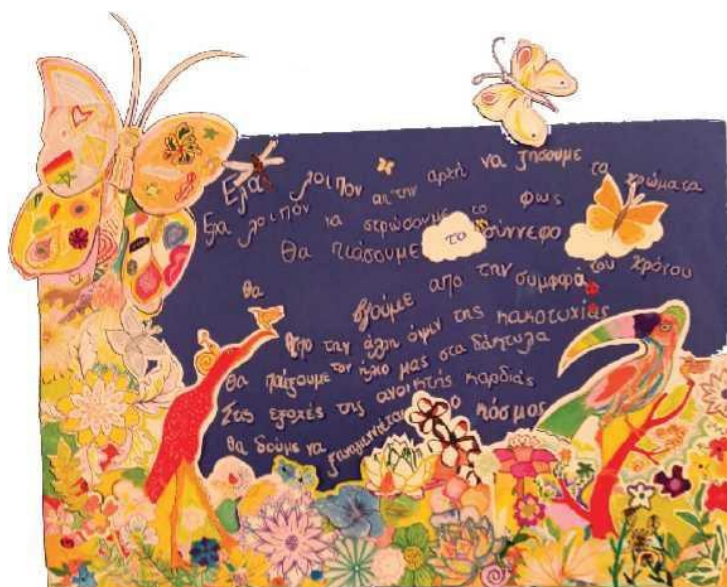 Ελα λοιπον απ την αρχή να ζησουμε τα χρώματα
Ελα λοιπον να στρώσουμε το φως
θα πιάσουμε το σύννεφο
θα βγούμε απο την συμφορά του χρόνου
Απο την άλλη όψιν της κακοτυχίας
θα παίξουμε τον ήλιο μας στα δάκτυλα
Στις εξοχές της ανοικτής καρδιάς
θα δούμε να ξαναγεννιέται ο κόσμος